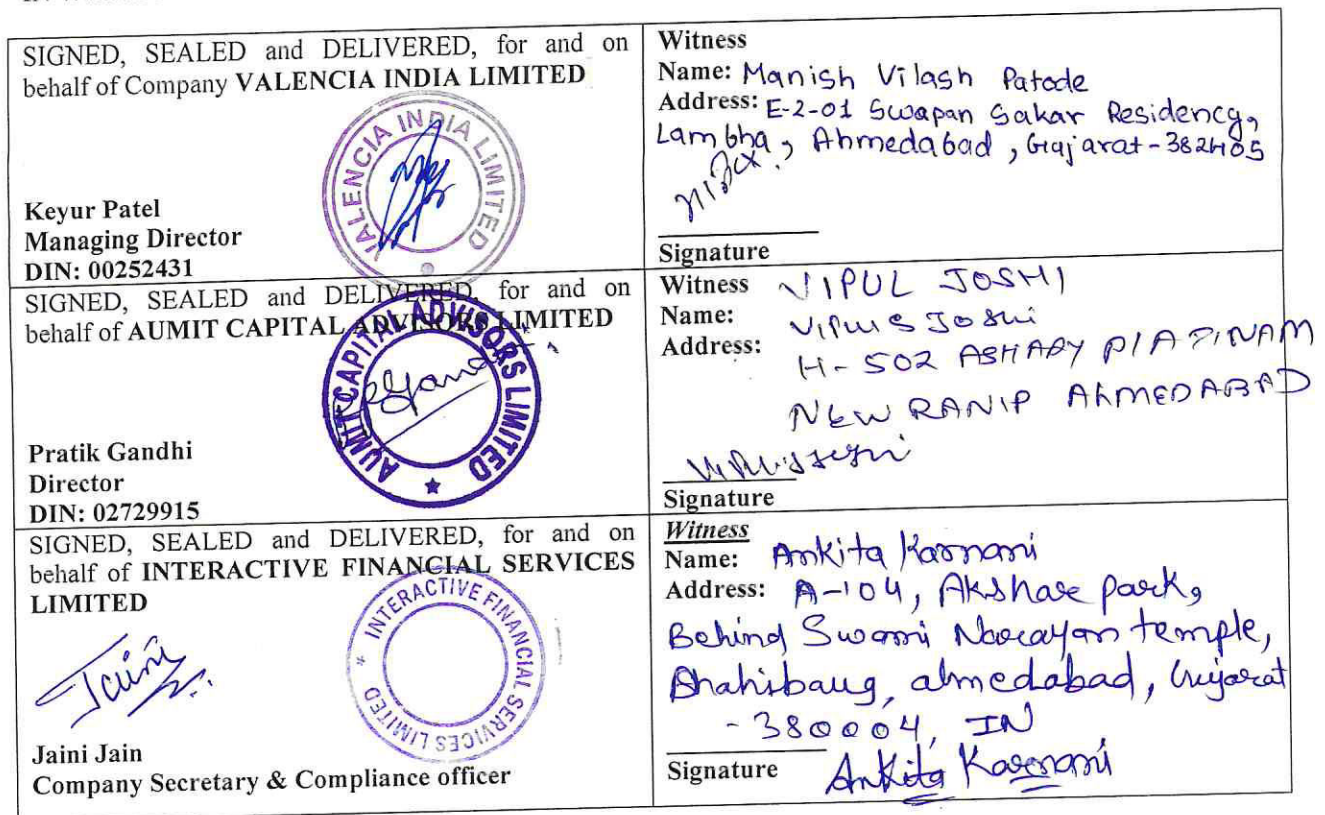 SIGNED, SEALED and DELIVERED, for and on
behalf of Company VALENCIA INDIA LIMITED
VALENCIA INDIA LIMITED
Keyur Patel
Managing Director
DIN: 00252431
Witness
Name: Manish Vilash Patode
Address: E-2-01 Swapan Sakar Residency,
Lambha, Ahmedabad, Gujarat-382405
Signature
SIGNED, SEALED and DELIVERED, for and on
behalf of AUMIT CAPITAL ADVISORS LIMITED
AUMIT CAPITAL ADVISORS LIMITED
Pratik Gandhi
Director
DIN: 02729915
Witness VIPUL JOSHI
Name: Vipul S Joshi
Address: H-502
NEW RANIP AhMEDABAD
Signature
SIGNED, SEALED and DELIVERED, for and on
behalf of INTERACTIVE FINANCIAL SERVICES
LIMITED
INTERACTIVE FINANCIAL SERVICES LIMITED
Jaini
Jaini Jain
Company Secretary & Compliance officer
Witness
Name: Ankita Karnani
Address: A-104, Akshar park,
Behind Swami Narayan temple,
Shahibaug, ahmedabad, Gujarat
-380004, IN
Signature Ankita Karnani